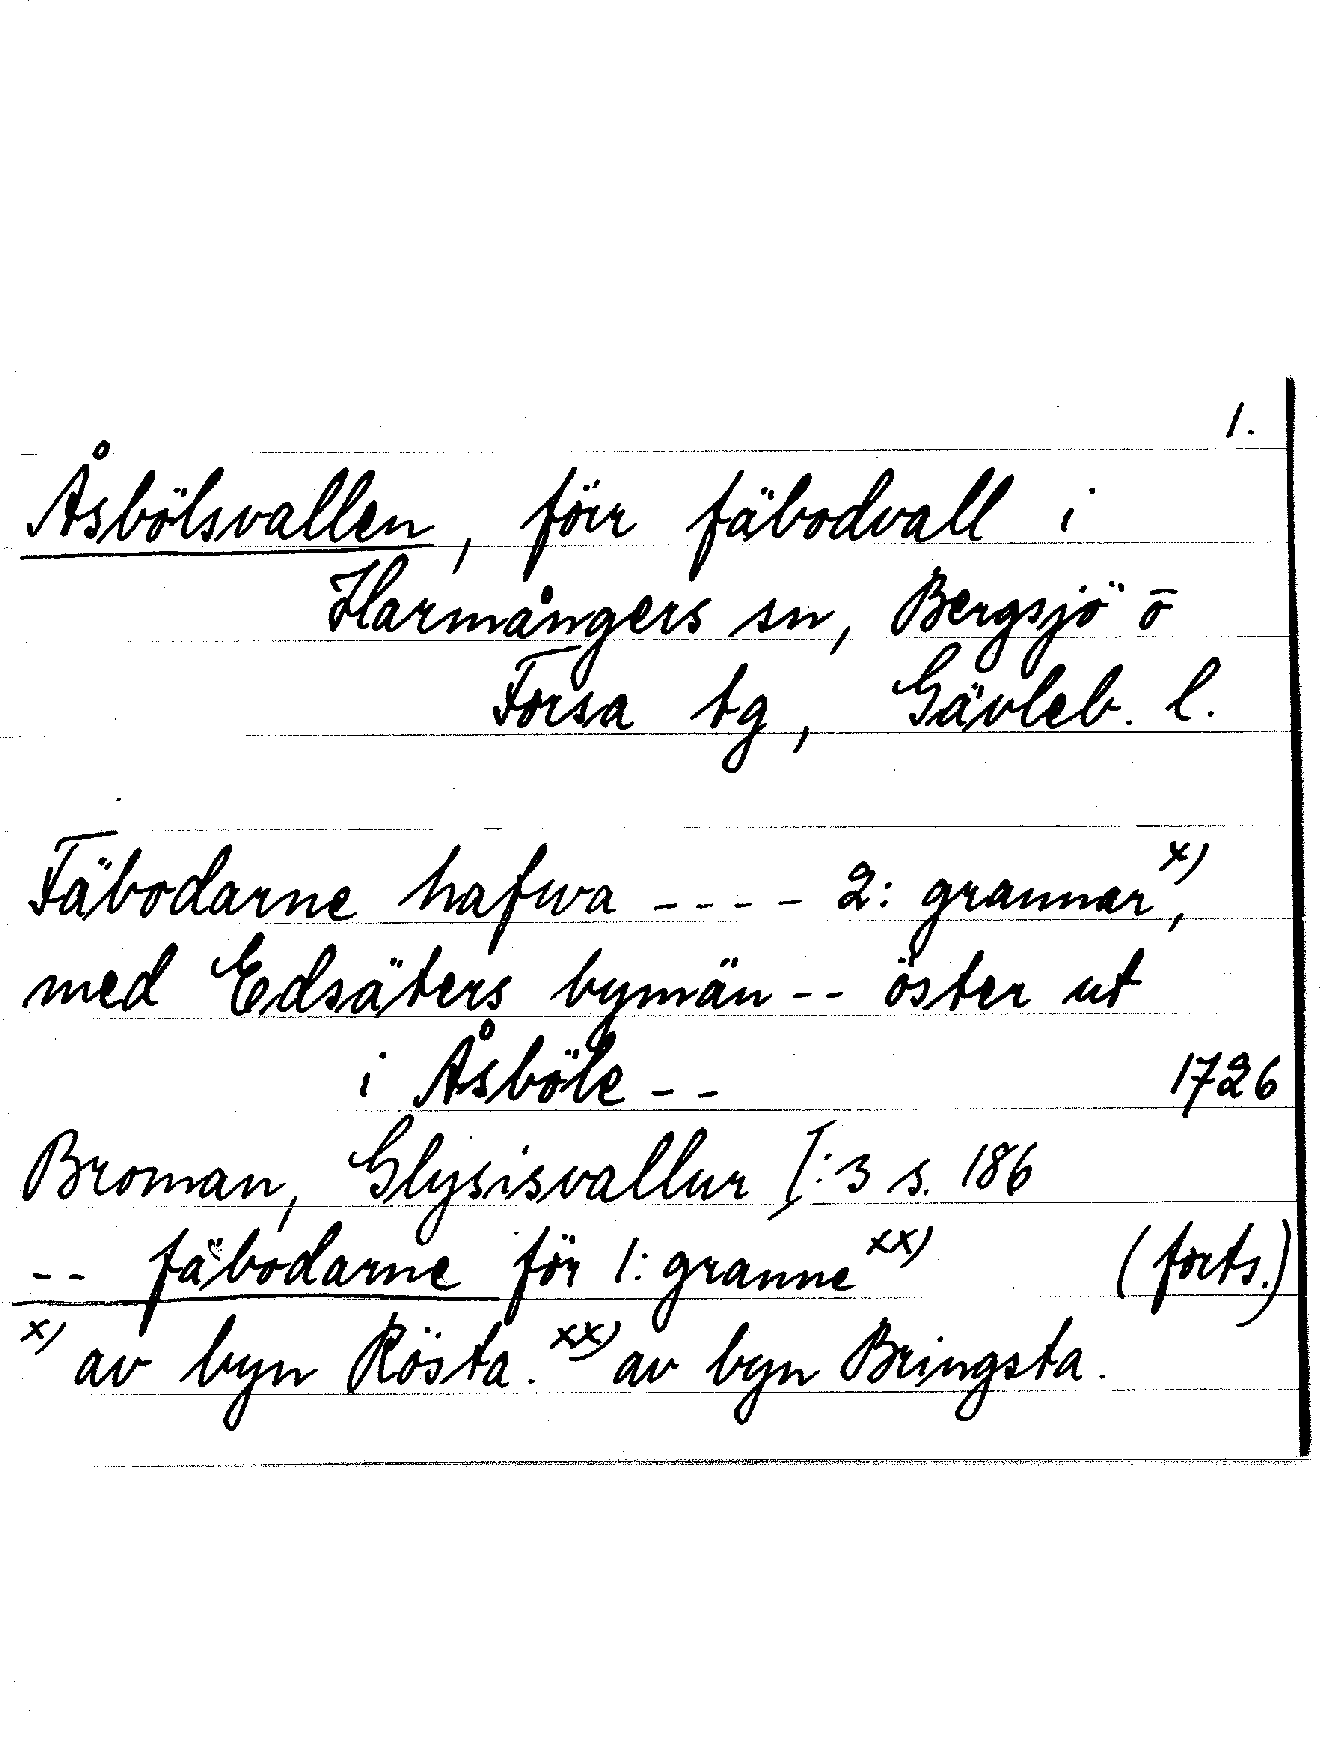 1.
Åsbölsvallen, förr fäbodvall i
Harmångers sn, Bergsjö o̅
Forsa tg, Gävleb. l.
Fäbodarne hafwa ---- 2: grannar x),
med Edsäters bymän -- öster ut
i Åsböle -- 1726
Broman, Glysisvallur I:3 s. 186
-- fäbodarne för 1: granne xx) (forts.)
x) av byn Rösta. xx) av byn Bringsta.